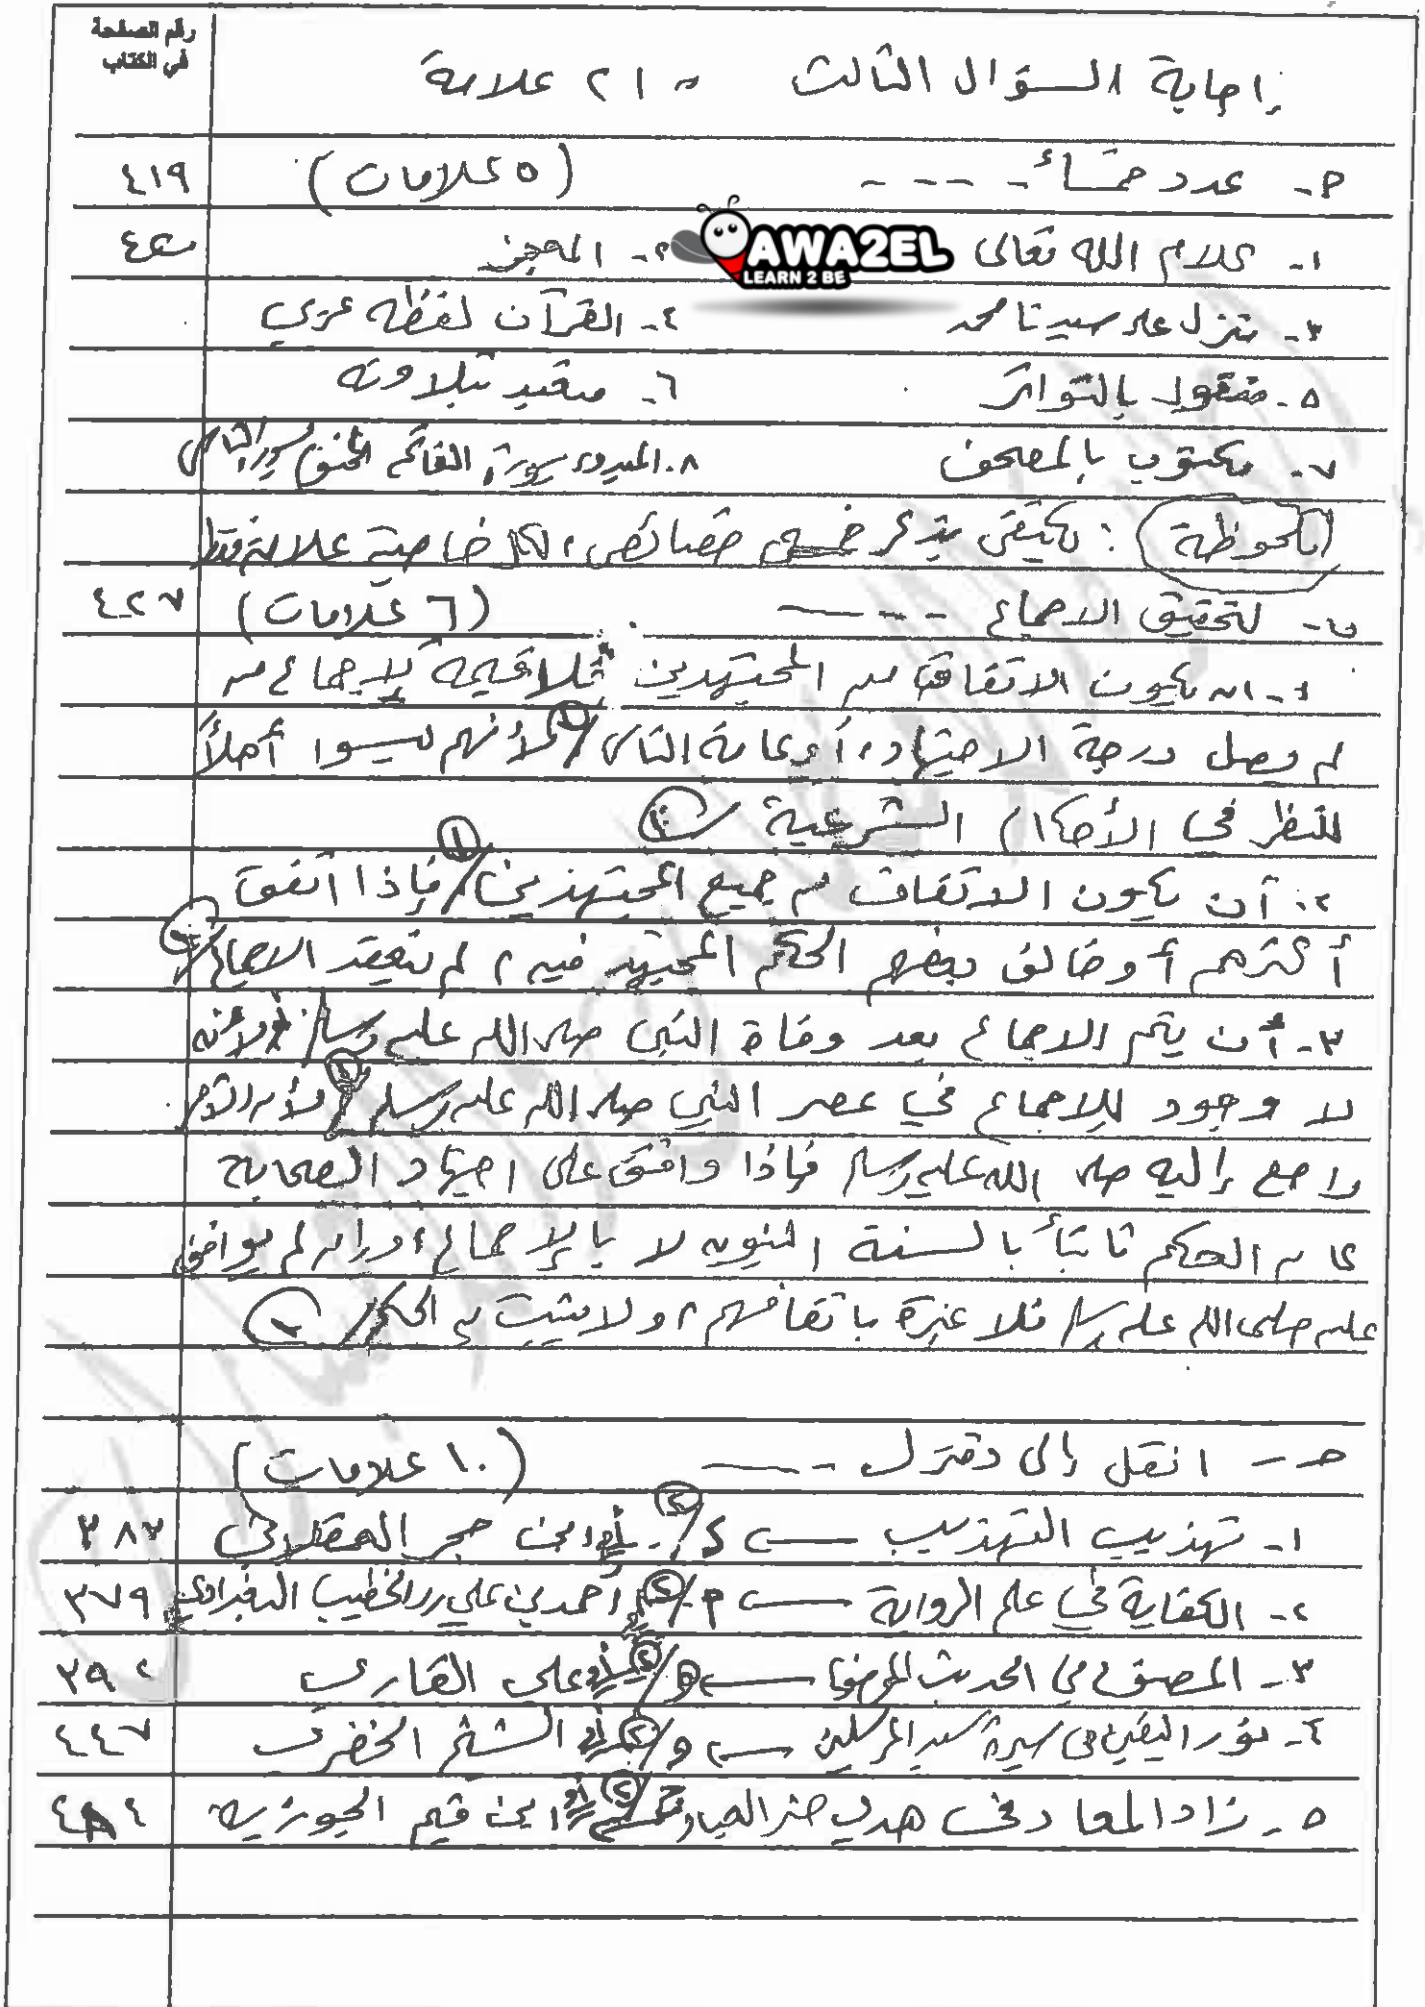 رقم الصفحة
في الكتاب
إجابة السؤال الثالث ٢١ علامة
٤١٩
م- عدد خصائص - - - - (٥ علامات)
١- كلام الله تعالى ٢- المعجز
AWA2EL
LEARN 2 BE
٣- تنزل على سيدنا محمد ٤- القرآن لفظه عربي
٥- منقول بالتواتر ٦- متعبد بتلاوته
٧- مكتوب بالمصحف ٨- المبدوء بسورة الفاتحة المختوم بسورة الناس
ملحوظة : يكتفى بذكر خمس خصائص، لكل خاصية علامة فقط
٤٢٧
ب- لتحقيق الاجماع - - - (٦ علامات)
١- ان يكون الاتفاق من المجتهدين فلا قيمة لإجماع من
لم يصل درجة الاجتهاد، أو عامة الناس ١ / لأنهم ليسوا أهلاً
للنظر في الأحكام الشرعية
٢- أن يكون الاتفاق من جميع المجتهدين ١ / فإذا اتفق
أكثرهم أو خالف بعضهم الحكم المجتهد فيه، لم ينعقد الاجماع
٣- أن يتم الاجماع بعد وفاة النبي صلى الله عليه وسلم / لأنه
لا وجود للاجماع في عصر النبي صلى الله عليه وسلم / لأن الأمر
راجع إليه صلى الله عليه وسلم فإذا وافق على اجتهاد الصحابة
كان الحكم ثابتاً بالسنة النبوية لا بالإجماع، وإن لم يوافق
عليه صلى الله عليه وسلم فلا عبرة باتفاقهم، ولا يثبت به الحكم
حـ- انقل إلى دفترك - - - (١٠ علامات)
١- تهذيب التهذيب ← ٢ / أو ابن حجر العسقلاني ٣٨٣
٢- الكفاية في علم الرواية ← م ٢ / أحمد بن علي الخطيب البغدادي ٣٧٩
٣- المصنوع في الحديث الموضوع ← هـ ٢ / أو علي القاري ٣٩٠
٤- نور اليقين في سيرة سيد المرسلين ← و ٢ / أو الشيخ الخضري ٤٤٧
٥- زاد المعاد في هدي خير العباد ٢ / أو ابن قيم الجوزية